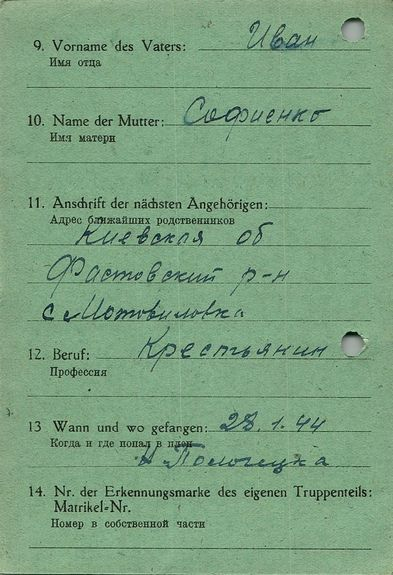 9. Vorname des Vaters: Иван
Имя отца
10. Name der Mutter: Софиенко
Имя матери
11. Anschrift der nächsten Angehörigen:
Адрес ближайших родственников
Киевская об
Фастовский р-н
с Мотовиловка
12. Beruf: Крестьянин
Профессия
13 Wann und wo gefangen: 28.1.44
Когда и где попал в плен
14. Nr. der Erkennungsmarke des eigenen Truppenteils:
Matrikel-Nr.
Номер в собственной части